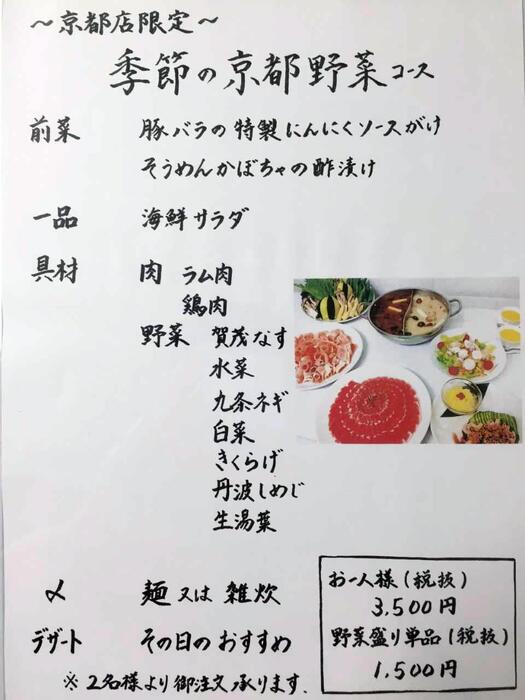 ～京都店限定～
季節の京都野菜コース
前菜 豚バラの特製にんにくソースがけ
そうめんかぼちゃの酢漬け
一品 海鮮サラダ
具材 肉 ラム肉
鶏肉
野菜 賀茂なす
水菜
九条ネギ
白菜
きくらげ
丹波しめじ
生湯葉
〆 麺又は雑炊
デザート その日のおすすめ
※2名様より御注文承ります.
お一人様(税抜)
3,500円
野菜盛り単品(税抜)
1,500円